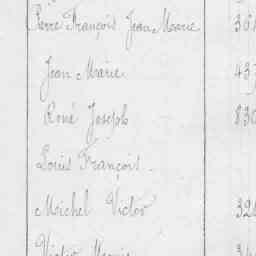 Pierre François Jean Marie 364
Jean Marie 437
René Joseph 830
Louis François.
Michel Victor 326
Victor Marie